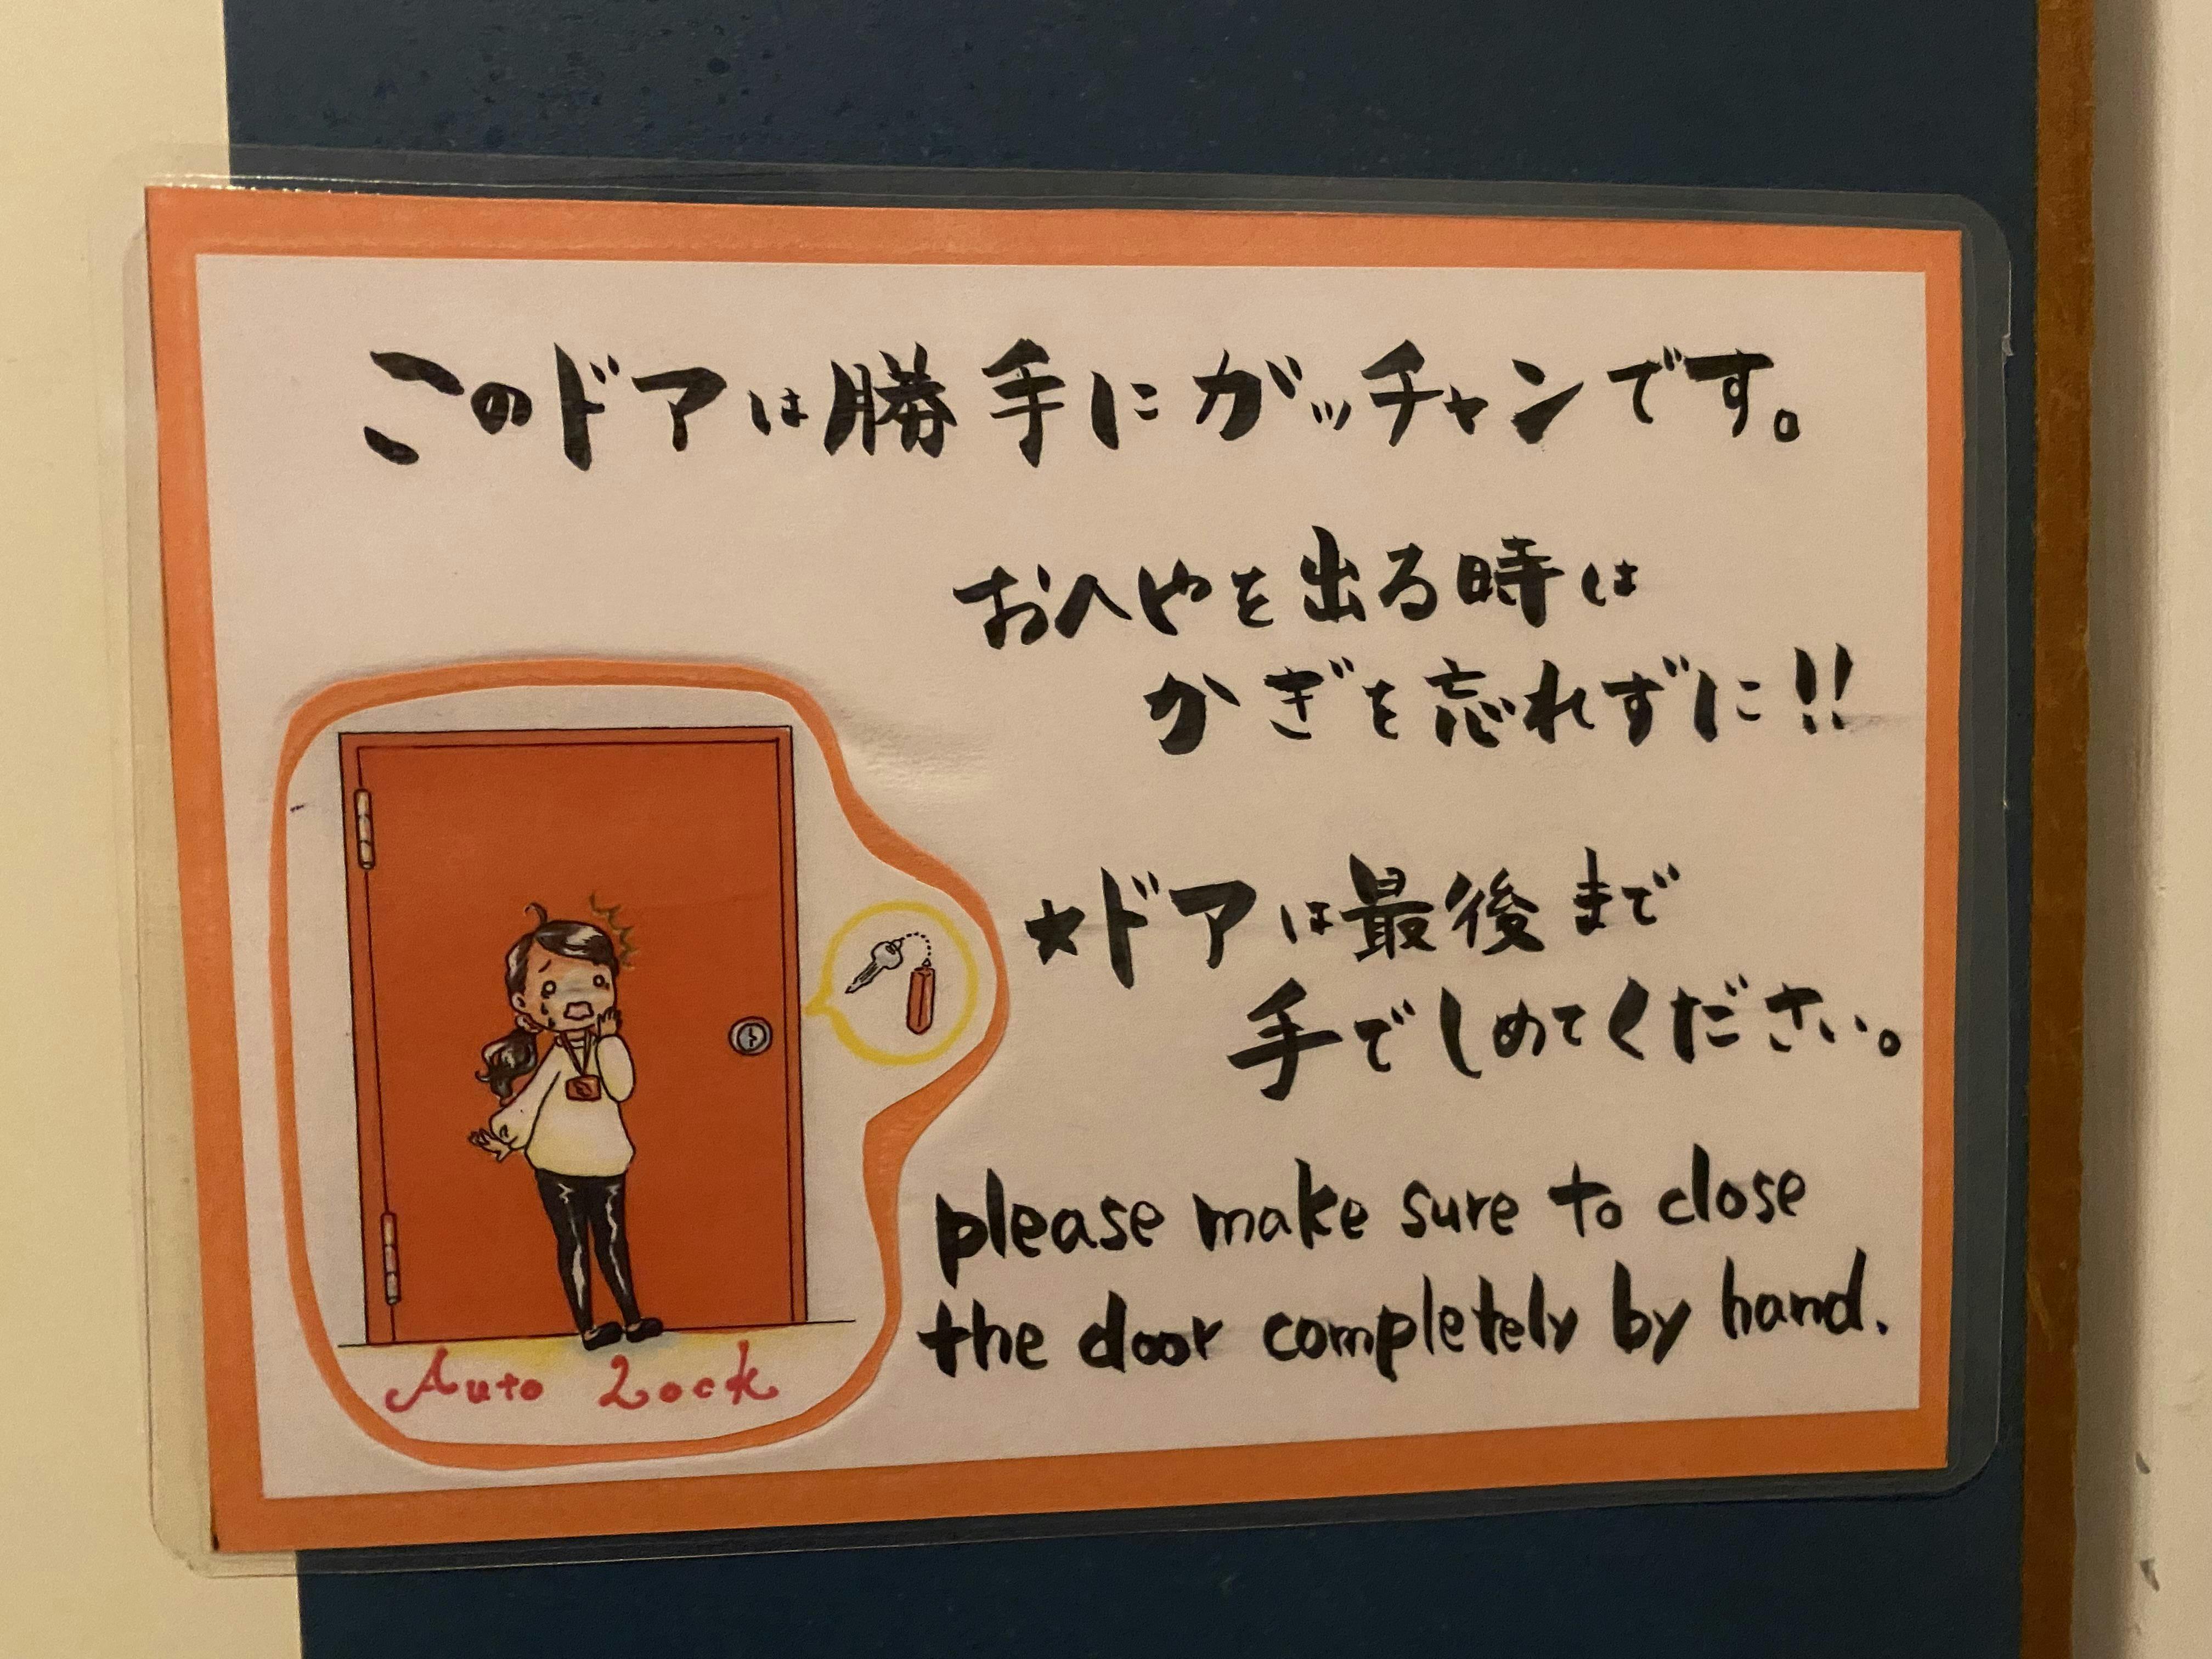 このドアは勝手にガッチャンです。
おへやを出る時は
かぎを忘れずに!!
★ドアは最後まで
手でしめてください。
please make sure to close
the door completely by hand.
Auto Lock